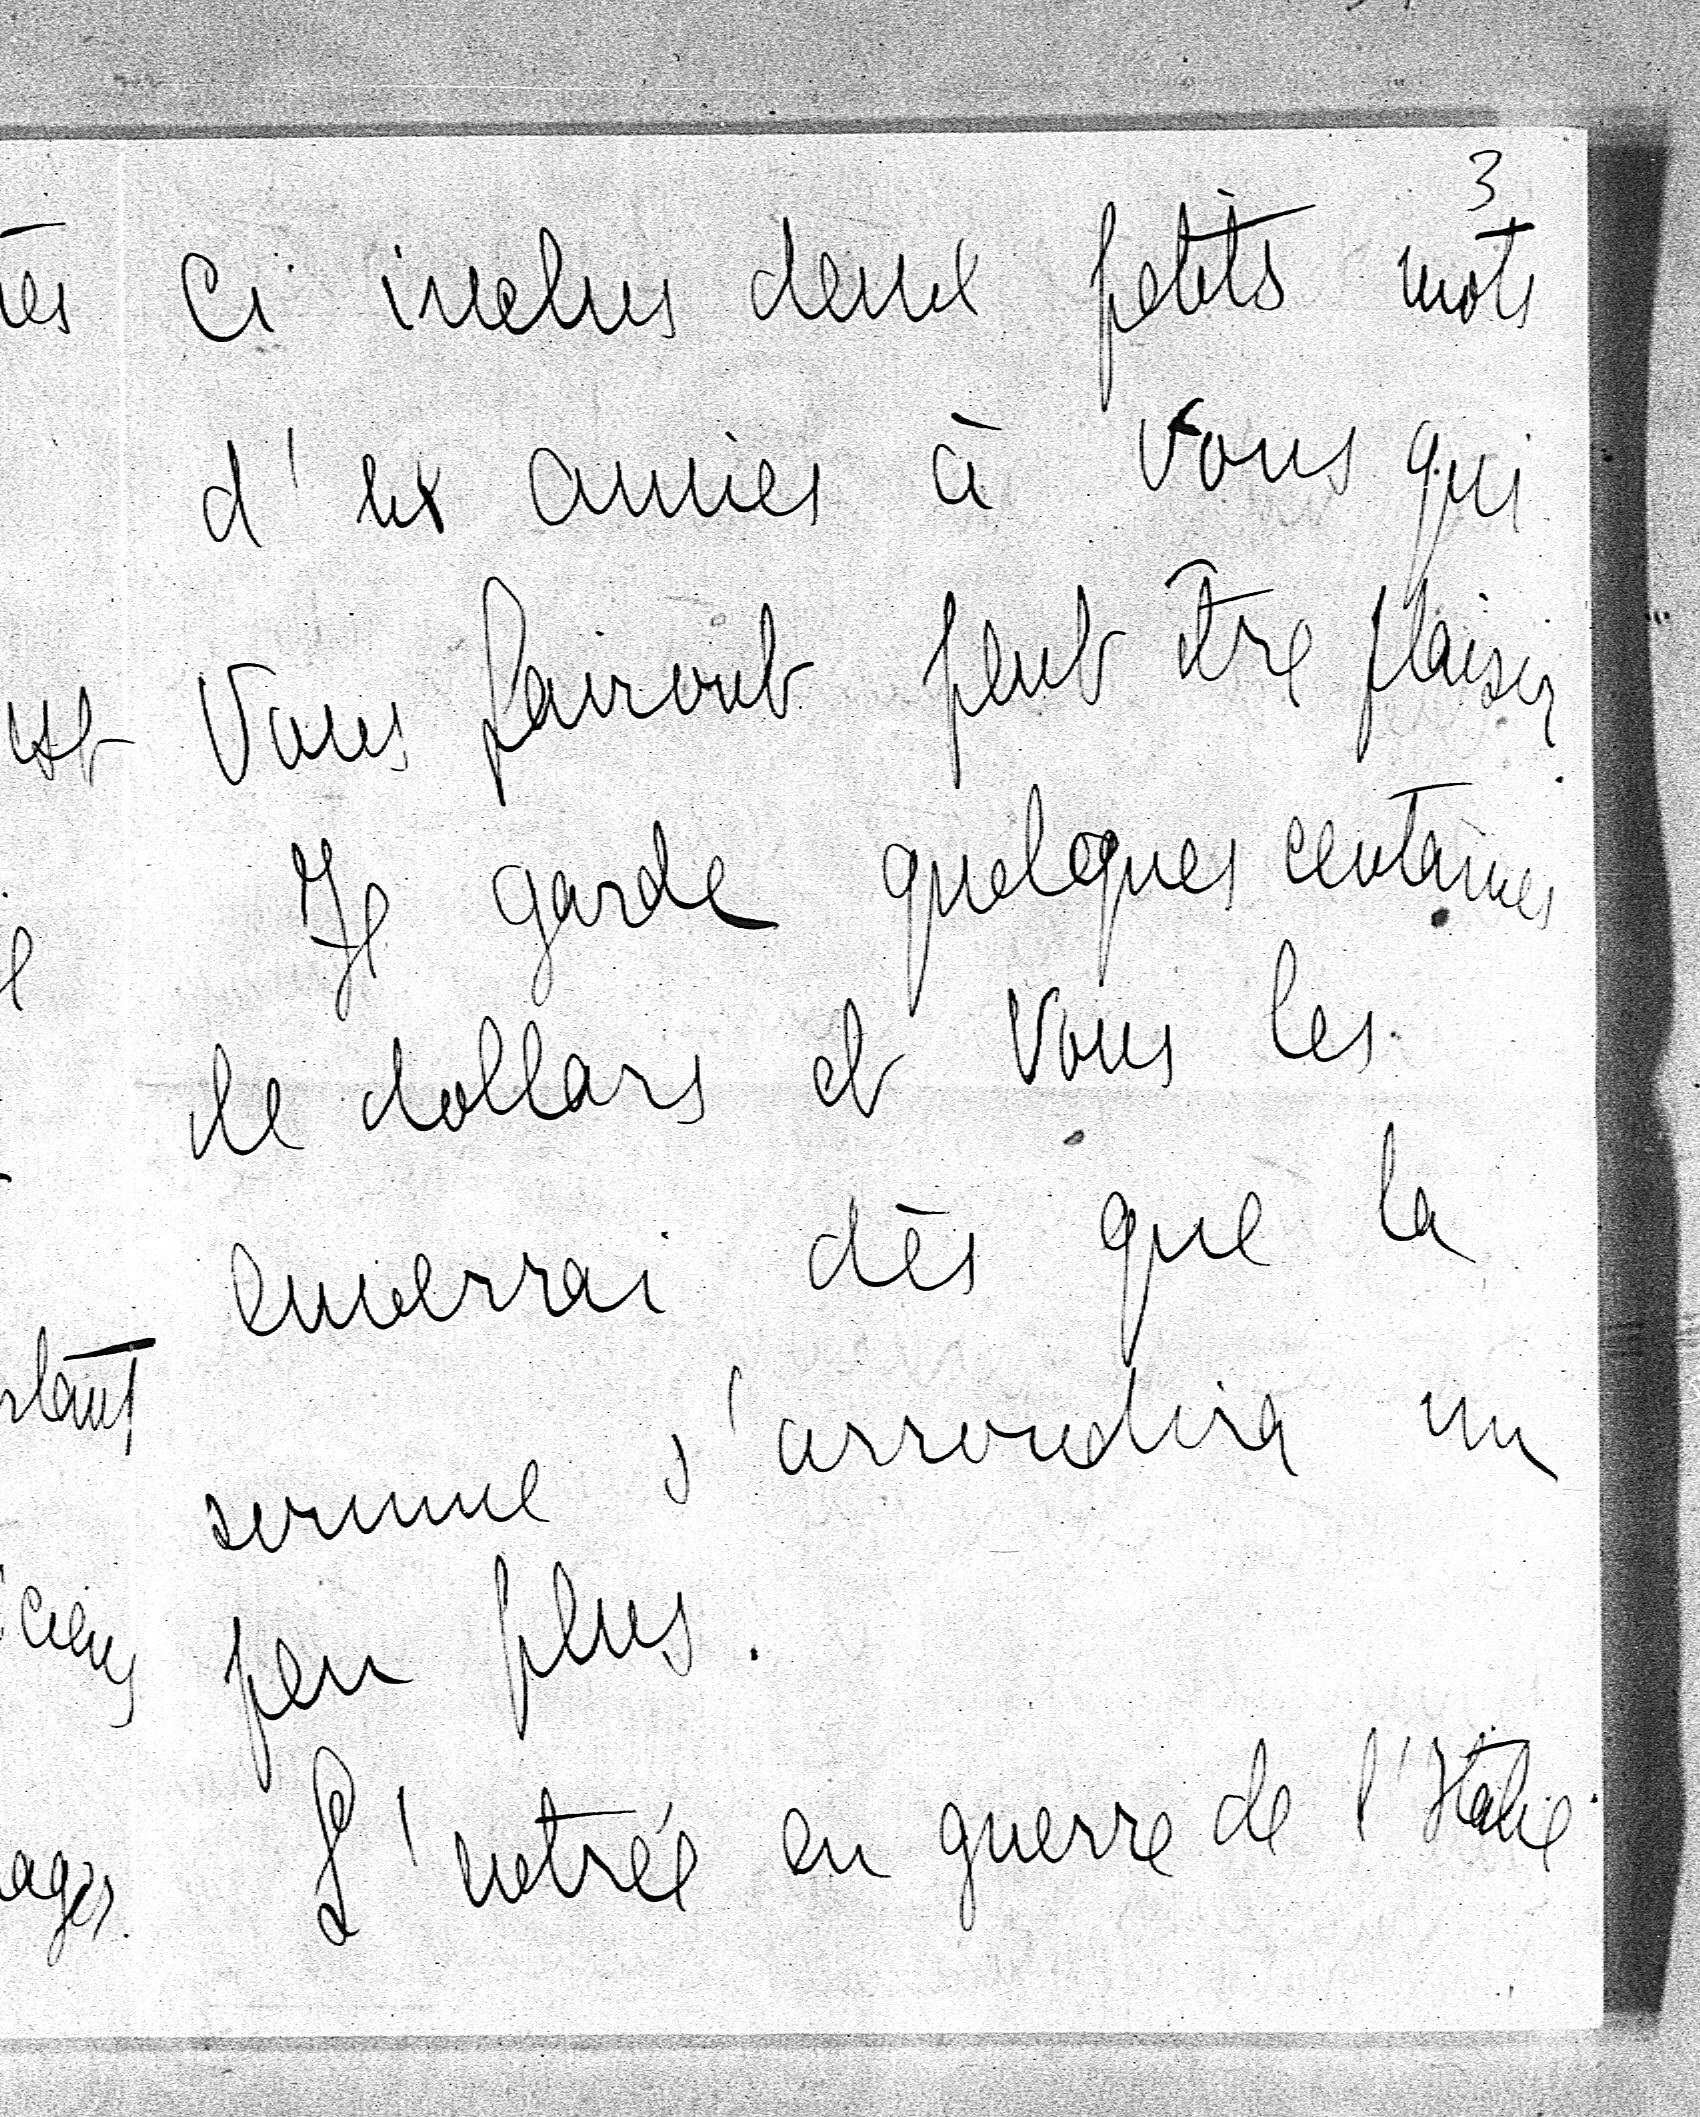 3
Ci inclus deux petits mots
d'ex amies à vous qui
vous fairont peut être plaisir
Je garde quelques centaines
de dollars et vous les
enverrai dès que la
somme s'arrondira un
peu plus.
L'entrée en guerre de l'Italie